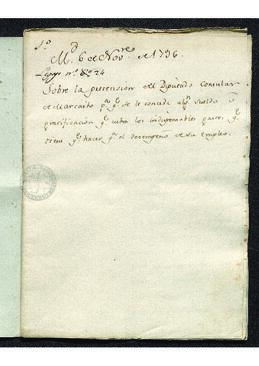 Md. 6 de Novre. de 1796.
Legjo. nº. 24
Sobre la pretension del Diputado Consular
de Alicante pa. q. se le conceda algn. sueldo ó
gratificación q. cubra los indispensables gastos q.
tiene q. hacer pa. el desempeño de su empleo.